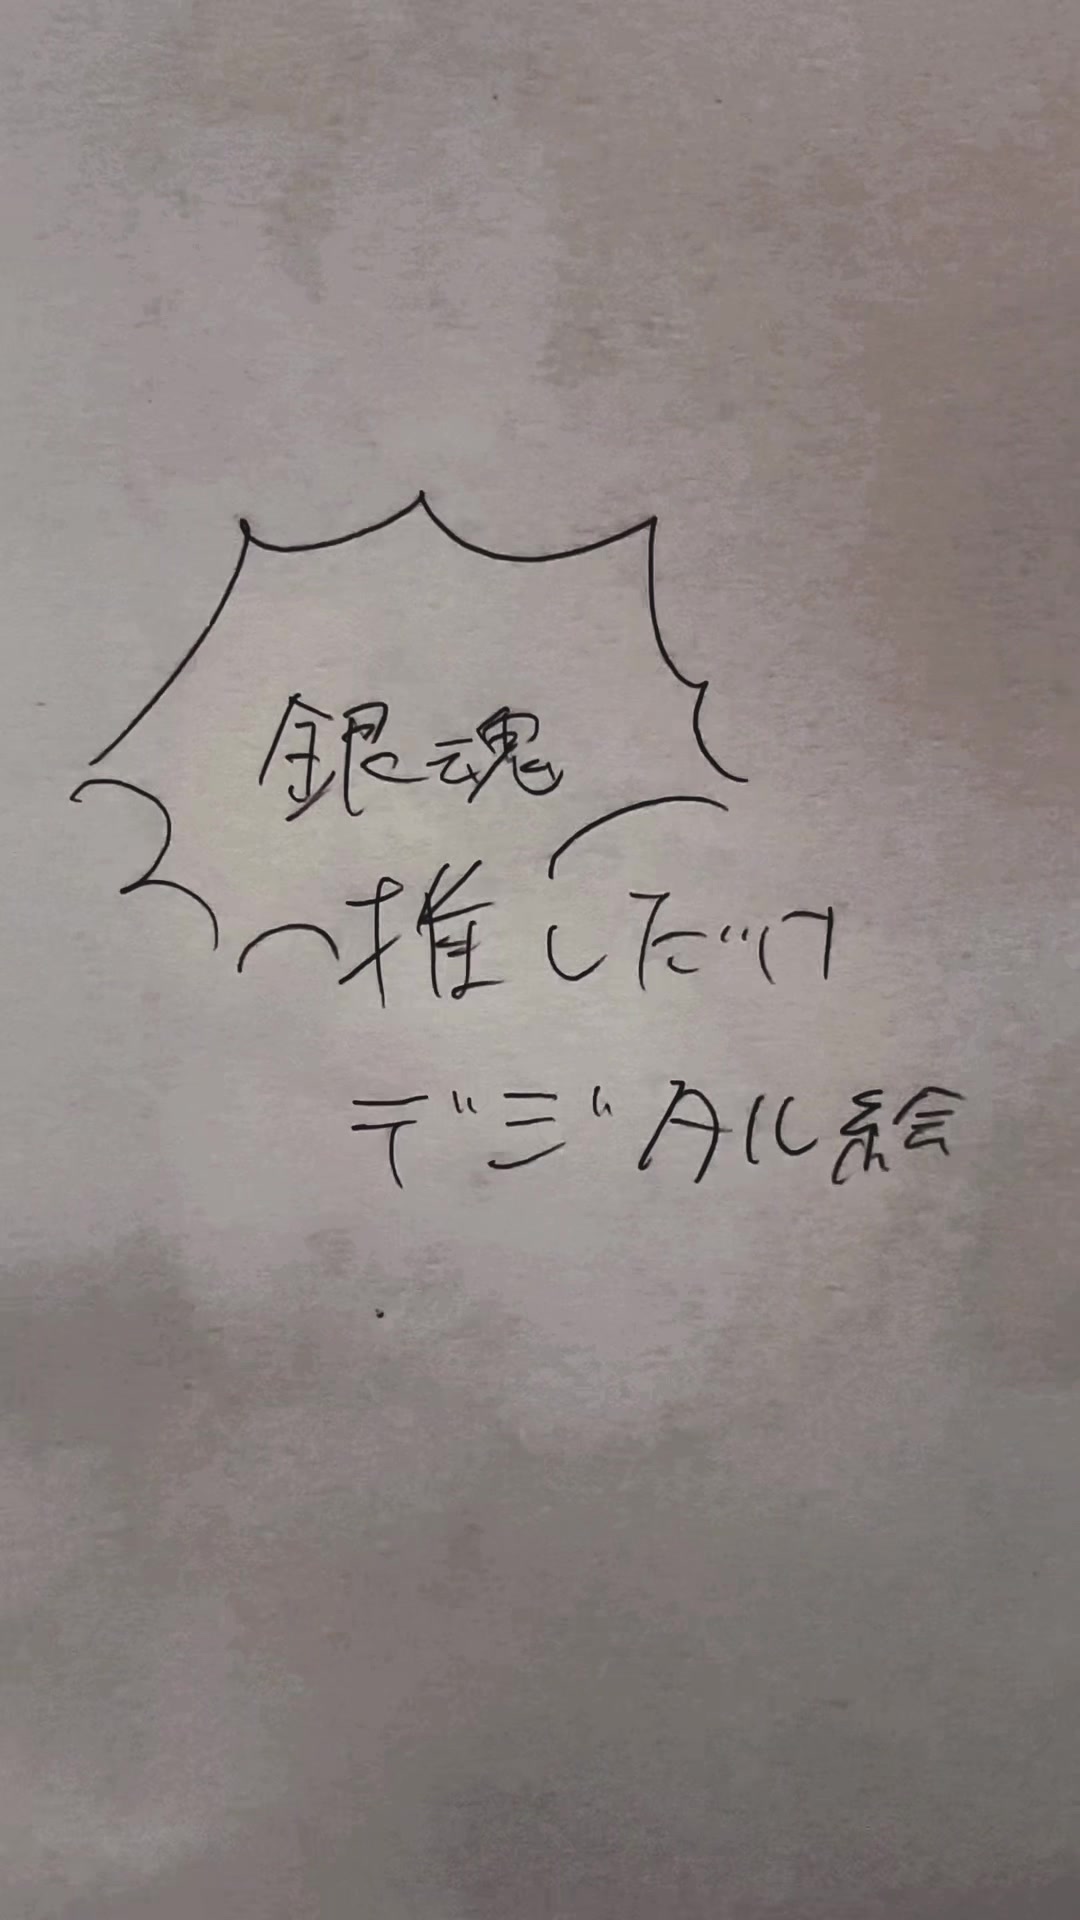 銀魂
推しだけ
デジタル絵